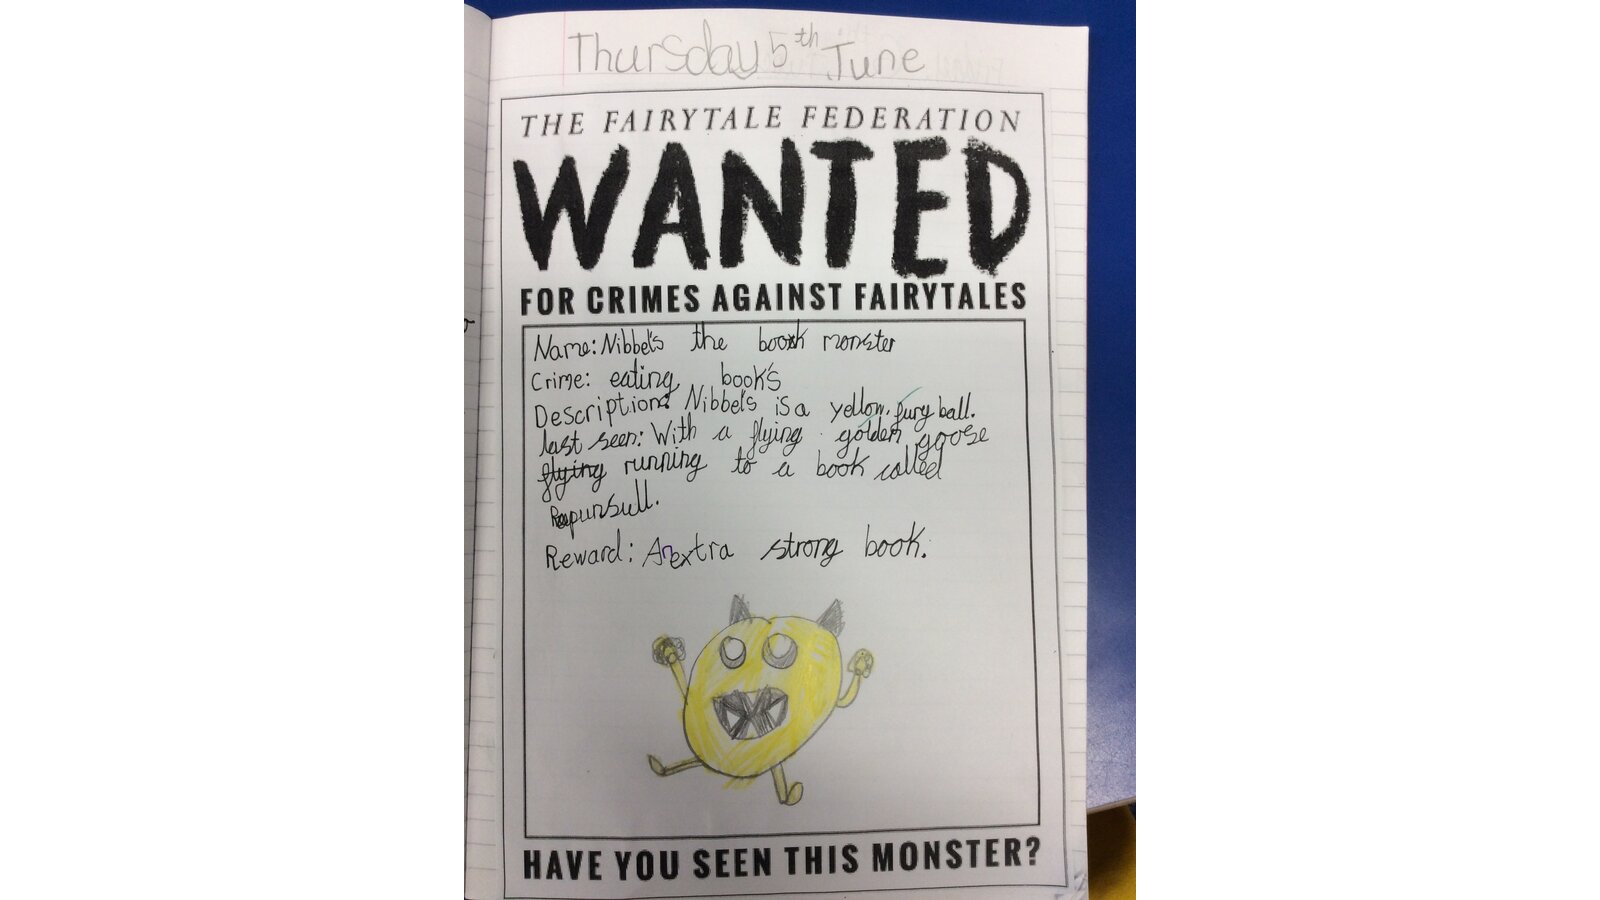 Thursday 5th June
THE FAIRYTALE FEDERATION
WANTED
FOR CRIMES AGAINST FAIRYTALES
Name: Nibbel's the book monster
Crime: eating book's
Description: Nibbel's is a yellow, fury ball.
last seen: With a flying golden goose
flying running to a book called
Rapunsull.
Reward: An extra strong book.
HAVE YOU SEEN THIS MONSTER?